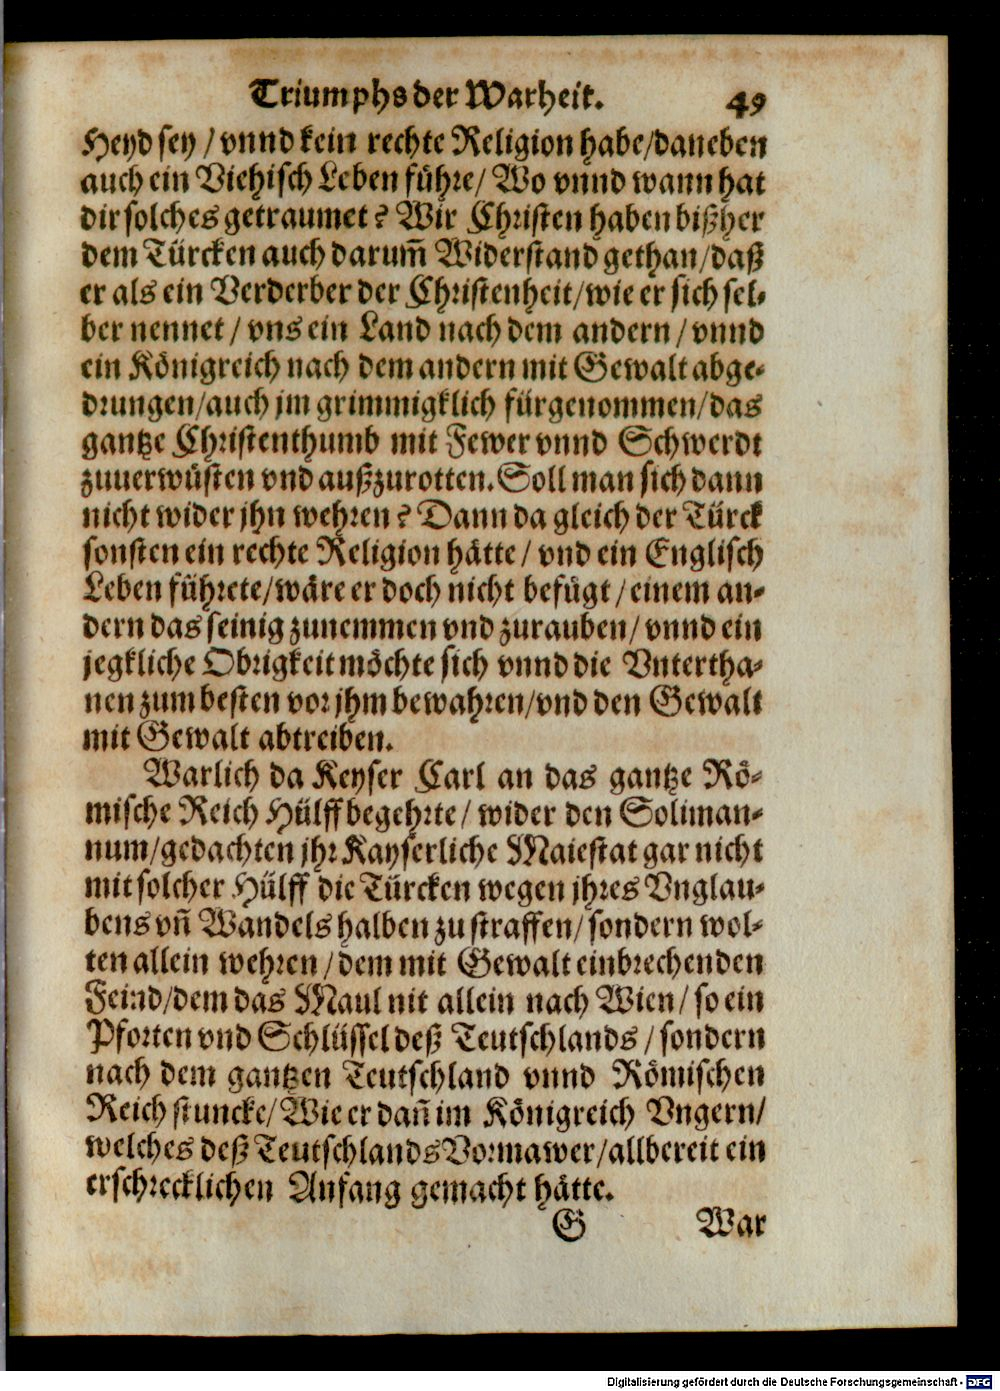 Triumphs der Warheit. 49
Heyd sey / vnnd kein rechte Religion habe/daneben
auch ein Viehisch Leben führe/ Wo vnnd wann hat
dir solches getraumet? Wir Christen haben bißher
dem Türcken auch darum̃ Widerstand gethan/daß
er als ein Verderber der Christenheit/wie er sich sel-
ber nennet / vns ein Land nach dem andern / vnnd
ein Königreich nach dem andern mit Gewalt abge-
drungen/auch jm grimmigklich fürgenommen/das
gantze Christenthumb mit Fewer vnnd Schwerdt
zuuerwüsten vnd außzurotten. Soll man sich dann
nicht wider jhn wehren? Dann da gleich der Türck
sonsten ein rechte Religion hätte / vnd ein Englisch
Leben führete/wäre er doch nicht befügt / einem an-
dern das seinig zunemmen vnd zurauben/ vnnd ein
jegkliche Obrigkeit möchte sich vnnd die Vntertha-
nen zum besten vor jhm bewahren/vnd den Gewalt
mit Gewalt abtreiben.
Warlich da Keyser Carl an das gantze Rö-
mische Reich Hülff begehrte/ wider den Soliman-
num/gedachten jhr Kayserliche Maiestat gar nicht
mit solcher Hülff die Türcken wegen jhres Vnglau-
bens vn̄ Wandels halben zu straffen/ sondern wol-
ten allein wehren / dem mit Gewalt einbrechenden
Feind/dem das Maul nit allein nach Wien/ so ein
Pforten vnd Schlüssel deß Teutschlands / sondern
nach dem gantzen Teutschland vnnd Römischen
Reich stuncke/ Wie er dan̄ im Königreich Vngern/
welches deß Teutschlands Vormawer/allbereit ein
erschrecklichen Anfang gemacht hätte.
G War
Digitalisierung gefördert durch die Deutsche Forschungsgemeinschaft - DFG